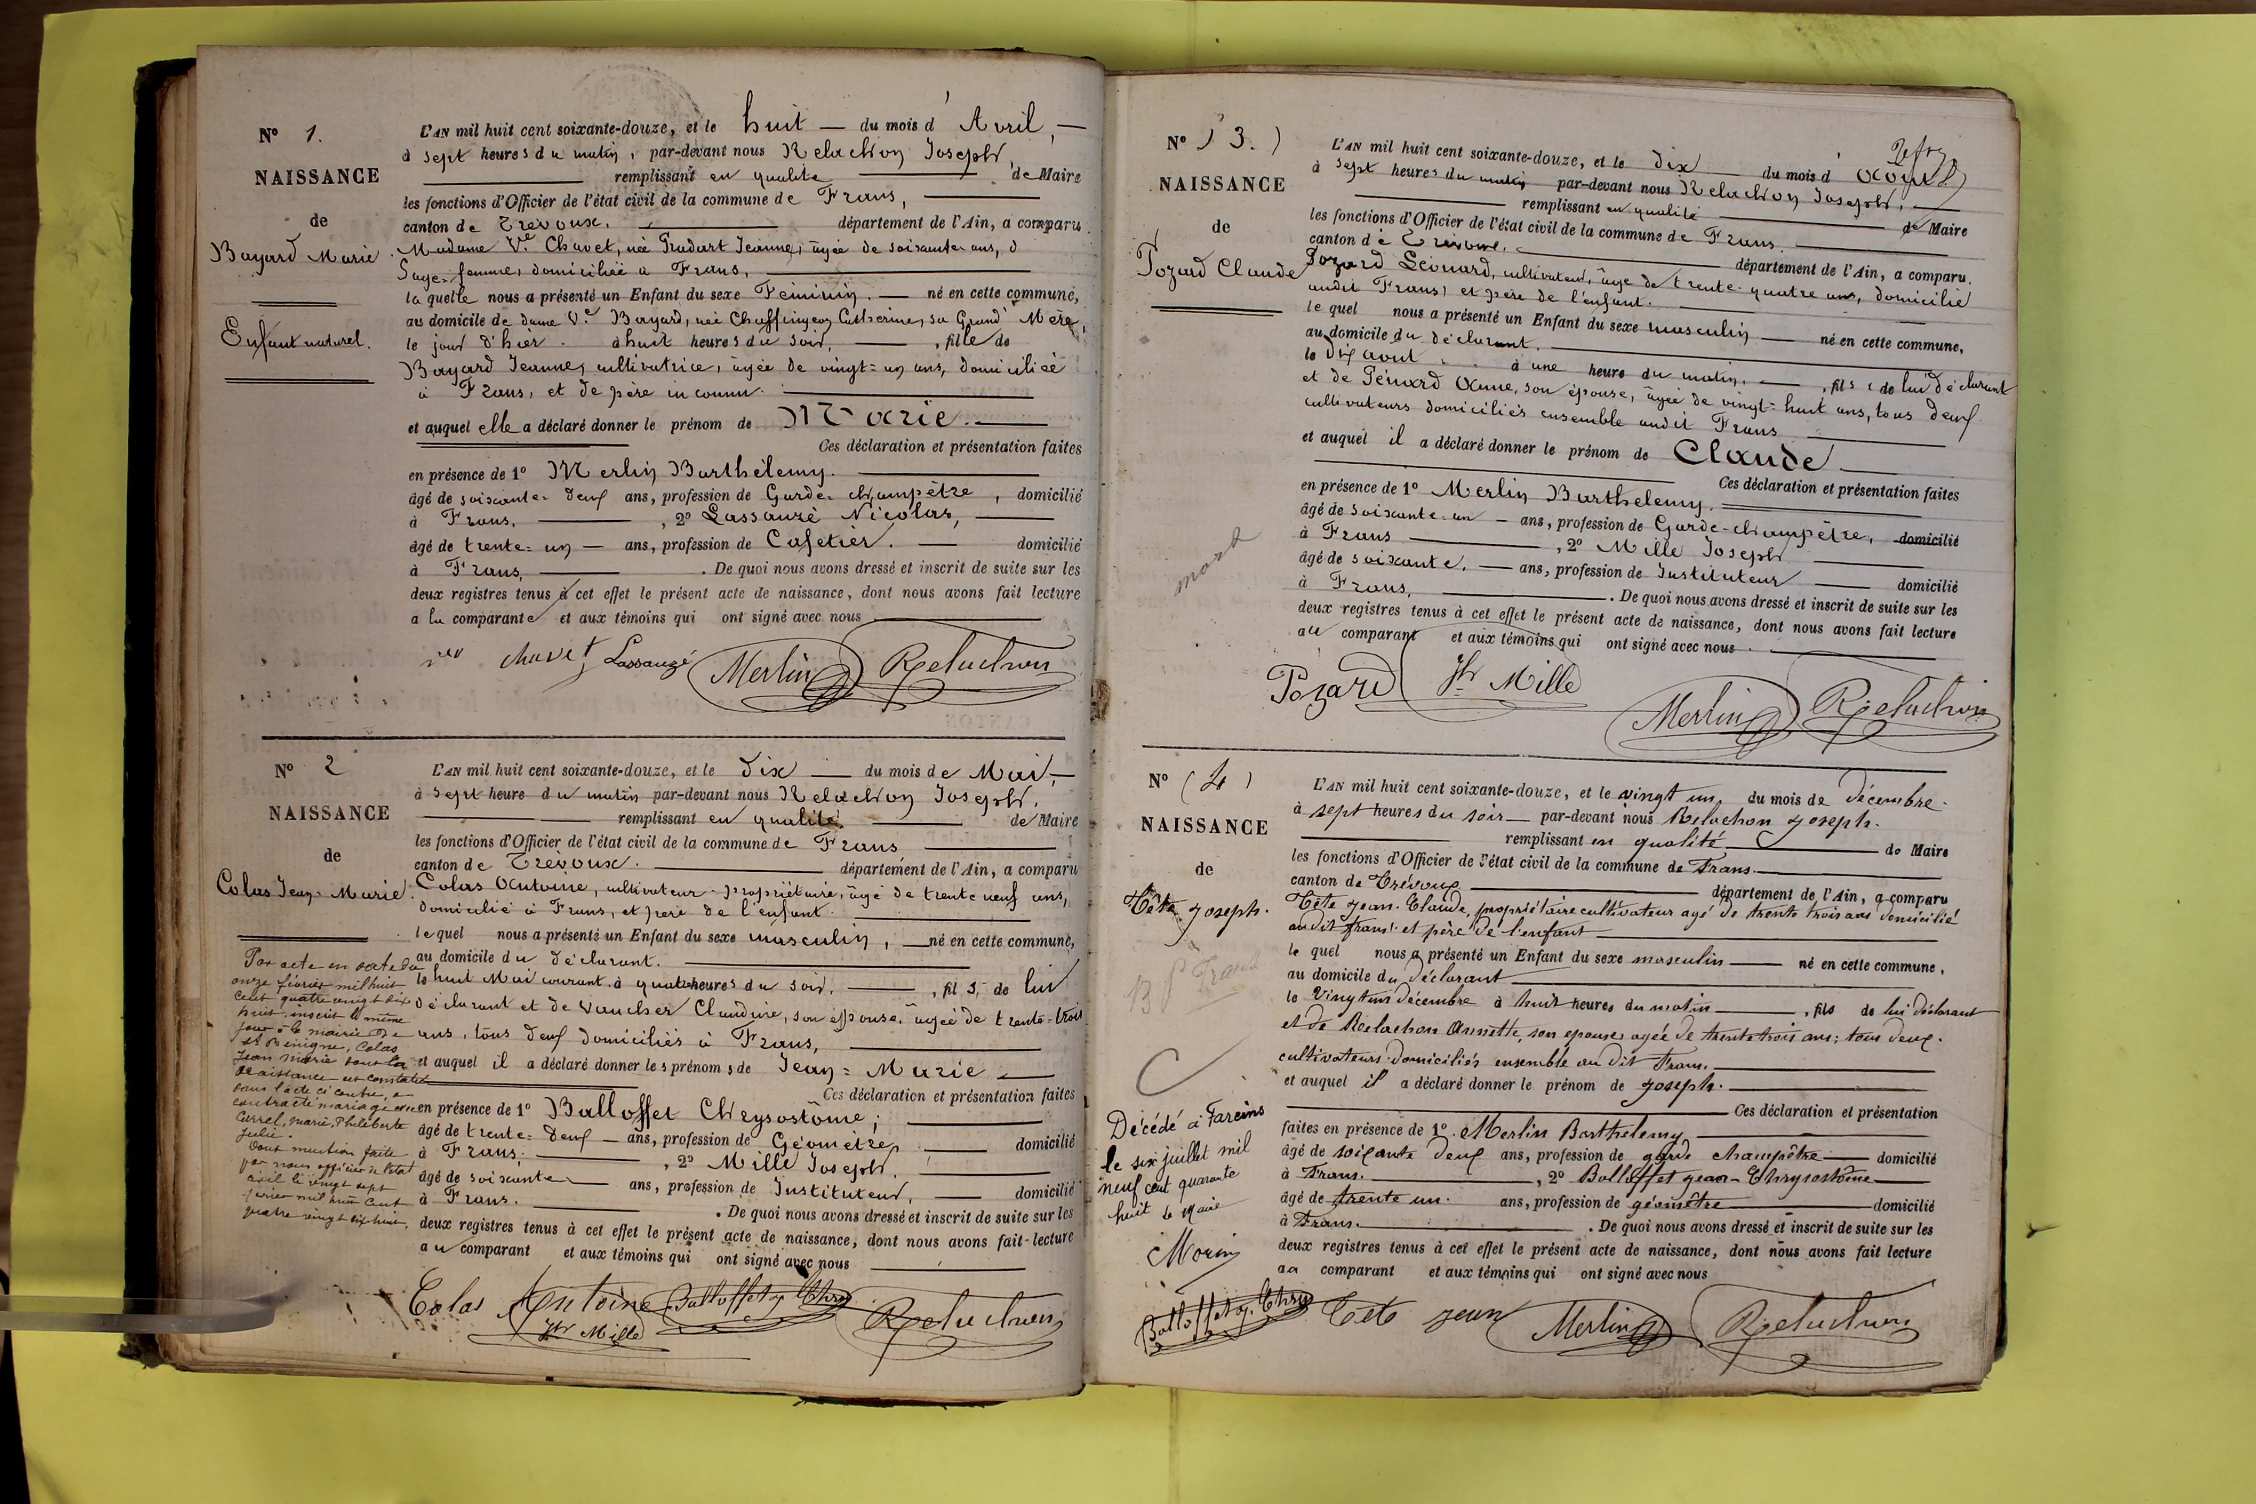 N° 1.
NAISSANCE
de
Bayard Marie
Enfant naturel.
L'AN mil huit cent soixante-douze, et le huit — du mois d' Avril, —
à sept heures du matin, par-devant nous Relachon Joseph,
remplissant en qualité de Maire
les fonctions d'Officier de l'état civil de la commune de Frans,
canton de Trévoux. département de l'Ain, a comparu
Madame Ve Chavet, née Gradart Jeanne, âgée de soixante ans,
Sage-femme, domiciliée à Frans,
laquelle nous a présenté un Enfant du sexe Féminin. — né en cette commune,
au domicile de dame Ve Bayard, née Chaffingeon Catherine, sa Grand' Mère,
le jour d'hier. à huit heures du soir, — , fille de
Bayard Jeanne, cultivatrice, âgée de vingt-un ans, domiciliée
à Frans, et de père inconnu.
et auquel elle a déclaré donner le prénom de Marie.
Ces déclaration et présentation faites
en présence de 1° Merlin Barthélemy.
âgé de soixante-deux ans, profession de Garde-champêtre, domicilié
à Frans, — , 2° Lassauzé Nicolas,
âgé de trente-un — ans, profession de Cafetier. — domicilié
à Frans, — . De quoi nous avons dressé et inscrit de suite sur les
deux registres tenus à cet effet le présent acte de naissance, dont nous avons fait lecture
a la comparante et aux témoins qui ont signé avec nous
chavet Lassauzé Merlin Relachon
N° 2
NAISSANCE
de
Colas Jean-Marie.
Par acte en date du
onze février mil huit
cent quatre vingt dix
huit, inscrit le même
jour à la mairie de
St Bénigne, Colas
Jean Marie dont la
naissance est constatée
dans l'acte ci contre, a
contracté mariage avec
Currel, Marie, Philiberte
Julie.
Dont mention faite
par nous officier de l'état
civil le vingt sept
février mil huit cent
quatre vingt dix huit.
L'AN mil huit cent soixante-douze, et le dix — du mois de Mai, —
à sept heure du matin par-devant nous Relachon Joseph,
remplissant en qualité de Maire
les fonctions d'Officier de l'état civil de la commune de Frans
canton de Trévoux. département de l'Ain, a comparu
Colas Antoine, cultivateur-propriétaire, âgé de trente neuf ans,
domicilié à Frans, et père de l'enfant.
lequel nous a présenté un Enfant du sexe masculin, — né en cette commune,
au domicile du déclarant.
le huit Mai courant. à quatre heures du soir. — , fils de lui
déclarant et de Vaucher Claudine, son épouse, âgée de trente-trois
ans, tous deux domiciliés à Frans,
et auquel il a déclaré donner les prénoms de Jean-Marie
Ces déclaration et présentation faites
en présence de 1° Balloffet Chrysostôme;
âgé de trente-deux — ans, profession de Géomètre, domicilié
à Frans; — , 2° Mille Joseph.
âgé de soixante — ans, profession de Instituteur, — domicilié
à Frans. — . De quoi nous avons dressé et inscrit de suite sur les
deux registres tenus à cet effet le présent acte de naissance, dont nous avons fait lecture
au comparant et aux témoins qui ont signé avec nous
Colas Antoine Balloffet J. Chry
Jh Mille Relachon
N° (3.)
NAISSANCE
de
Pozard Claude
mort
L'AN mil huit cent soixante-douze, et le dix du mois d' Août
à sept heures du matin par-devant nous Relachon Joseph,
remplissant en qualité de Maire
les fonctions d'Officier de l'état civil de la commune de Frans
canton de Trévoux. département de l'Ain, a comparu.
Pozard Léonard, cultivateur, âgé de trente-quatre ans, domicilié
audit Frans, et père de l'enfant.
lequel nous a présenté un Enfant du sexe masculin — né en cette commune,
au domicile du déclarant.
le dix août. à une heure du matin. — , fils de lui déclarant
et de Pénard Anne, son épouse, âgée de vingt-huit ans, tous deux
cultivateurs domiciliés ensemble audit Frans
et auquel il a déclaré donner le prénom de Claude
Ces déclaration et présentation faites
en présence de 1° Merlin Barthelemy.
âgé de soixante-un — ans, profession de Garde-champêtre, domicilié
à Frans — , 2° Mille Joseph
âgé de soixante. — ans, profession de Instituteur — domicilié
à Frans, — . De quoi nous avons dressé et inscrit de suite sur les
deux registres tenus à cet effet le présent acte de naissance, dont nous avons fait lecture
au comparant et aux témoins qui ont signé avec nous.
Pozard Jh Mille
Merlin Relachon
N° (4)
NAISSANCE
de
Tête Joseph.
Décédé à Fareins
le six juillet mil
neuf cent quarante
huit Le Maire
Morin
L'AN mil huit cent soixante-douze, et le vingt un du mois de décembre.
à sept heures du soir — par-devant nous Relachon Joseph.
remplissant en qualité de Maire
les fonctions d'Officier de l'état civil de la commune de Frans.
canton de Trévoux département de l'Ain, a comparu
Tête Jean-Claude, propriétaire cultivateur agé de trente trois ans domicilié
au dit Frans et père de l'enfant
lequel nous a présenté un Enfant du sexe masculin — né en cette commune,
au domicile du déclarant
le Vingt un décembre à huit heures du matin — , fils de lui déclarant
et de Relachon Annette, son epouse agée de trente trois ans; tous deux.
cultivateurs domiciliés ensemble au dit Frans.
et auquel il a déclaré donner le prénom de Joseph.
Ces déclaration et présentation
faites en présence de 1° Merlin Barthelemy
âgé de soixante deux ans, profession de garde champêtre — domicilié
à Frans. — , 2° Balloffet Jean-Chrysostôme
âgé de trente un. ans, profession de géomètre — domicilié
à Frans. — . De quoi nous avons dressé et inscrit de suite sur les
deux registres tenus à cet effet le présent acte de naissance, dont nous avons fait lecture
au comparant et aux témoins qui ont signé avec nous
Balloffet J. Chry Tete jean Merlin Relachon